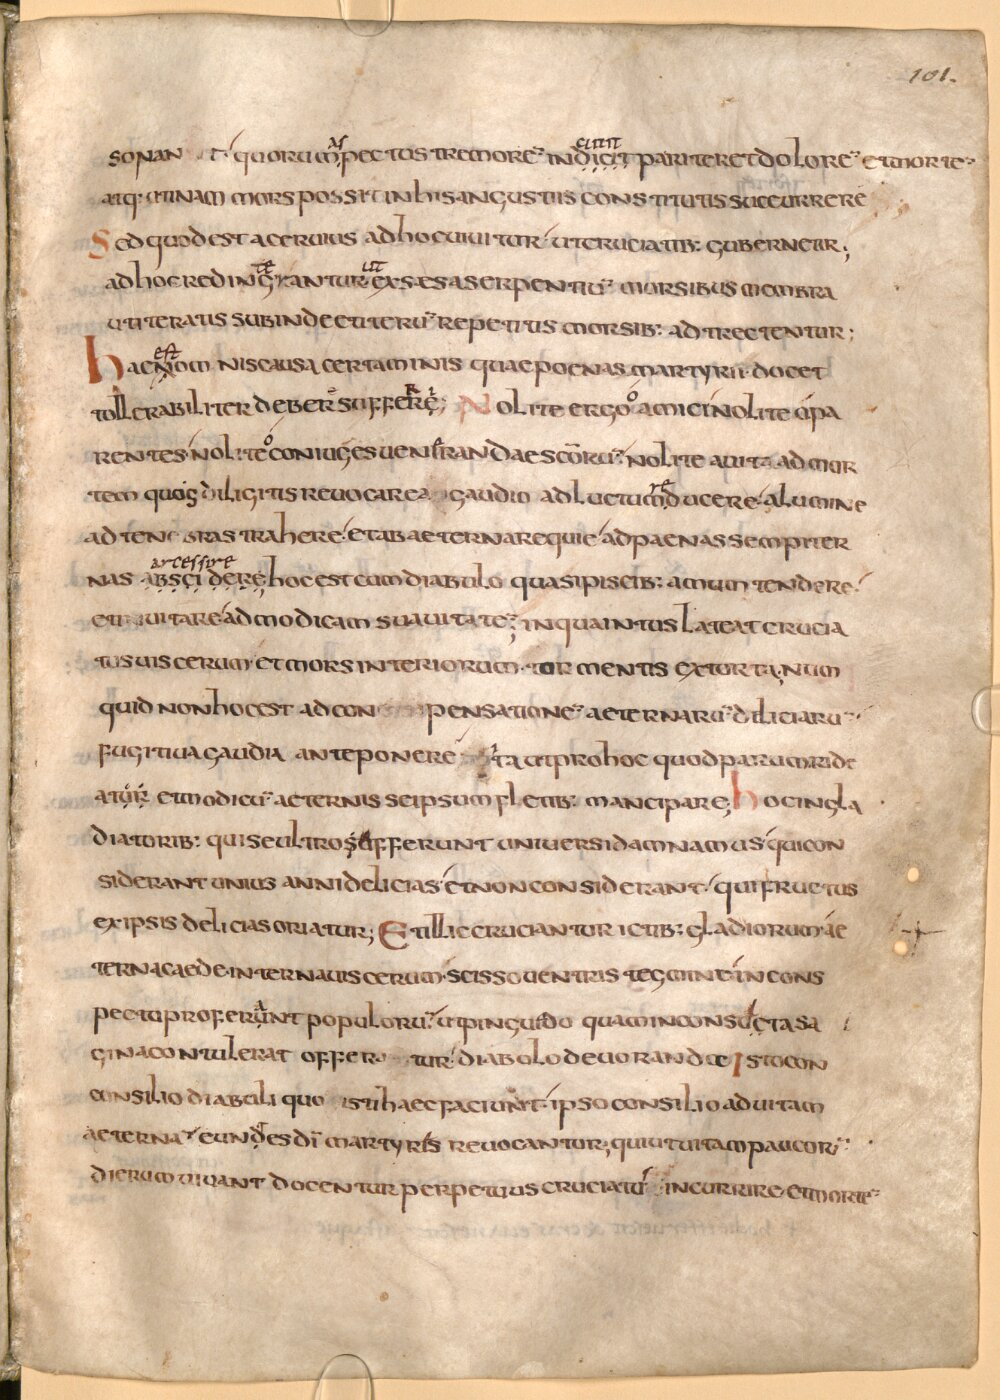 101.
sonant quorum pectus tremore indicit pariter et dolore et morte
atq: utinam mors possit in his angustiis constitutis succurrere
Sed quod est acervius adhoc vivitur ut cruciatib: gubernetur;
adhoc redin exsæsas erpentiu morsibus membra
ut iteratis subinde et iteru repetitis morsib: adtrectentur;
haec non niscausa certaminis quae poenas martyrii docet
tollerabiliter deber sufferre; Nolite ergo amici nolite o pa
rentes nolite o coniuges venerandae scoru nolite a vita ad mor
tem quos diligitis revocare a gaudio ad luctum ducere a lumine
ad tenebras trahere et ab aeterna requie ad paenas sempiter
arcessire
nas abscidere hoc est cum diabulo quasi piscib: amum tendere
et invitare ad modicam suavitate; in qua intus lateat crucia
tus viscerum et mors interiorum tormentis extorta; num
quid non hoc est ad conpensatione aeternaru diliciaru
fugitiva gaudia anteponere ita ut pro hoc quod parum ride
atur et modicu aeternis se ipsum fletib: mancipare; hoc in gla
diatorib: qui se ultro offerunt universi damnamus qui con
siderant unius anni delicias et non considerant qui fructus
ex ipsis delicias oriatur; Et illic cruciantur ictib: gladiorum ae
terna caede interna viscerum scisso ventris tegmine in cons
pectu proferunt populoru ut pinguido quam inconsueta sa
gina contulerat offer tur diabolo devorandae Isto con
consilio diabuli quo isti haec faciunt ipso consilio ad vitam
aeterna eundes di martyris revocantur; qui ut vitam paucoru
dierum vivant docentur perpetuus cruciatu incurrire et morte